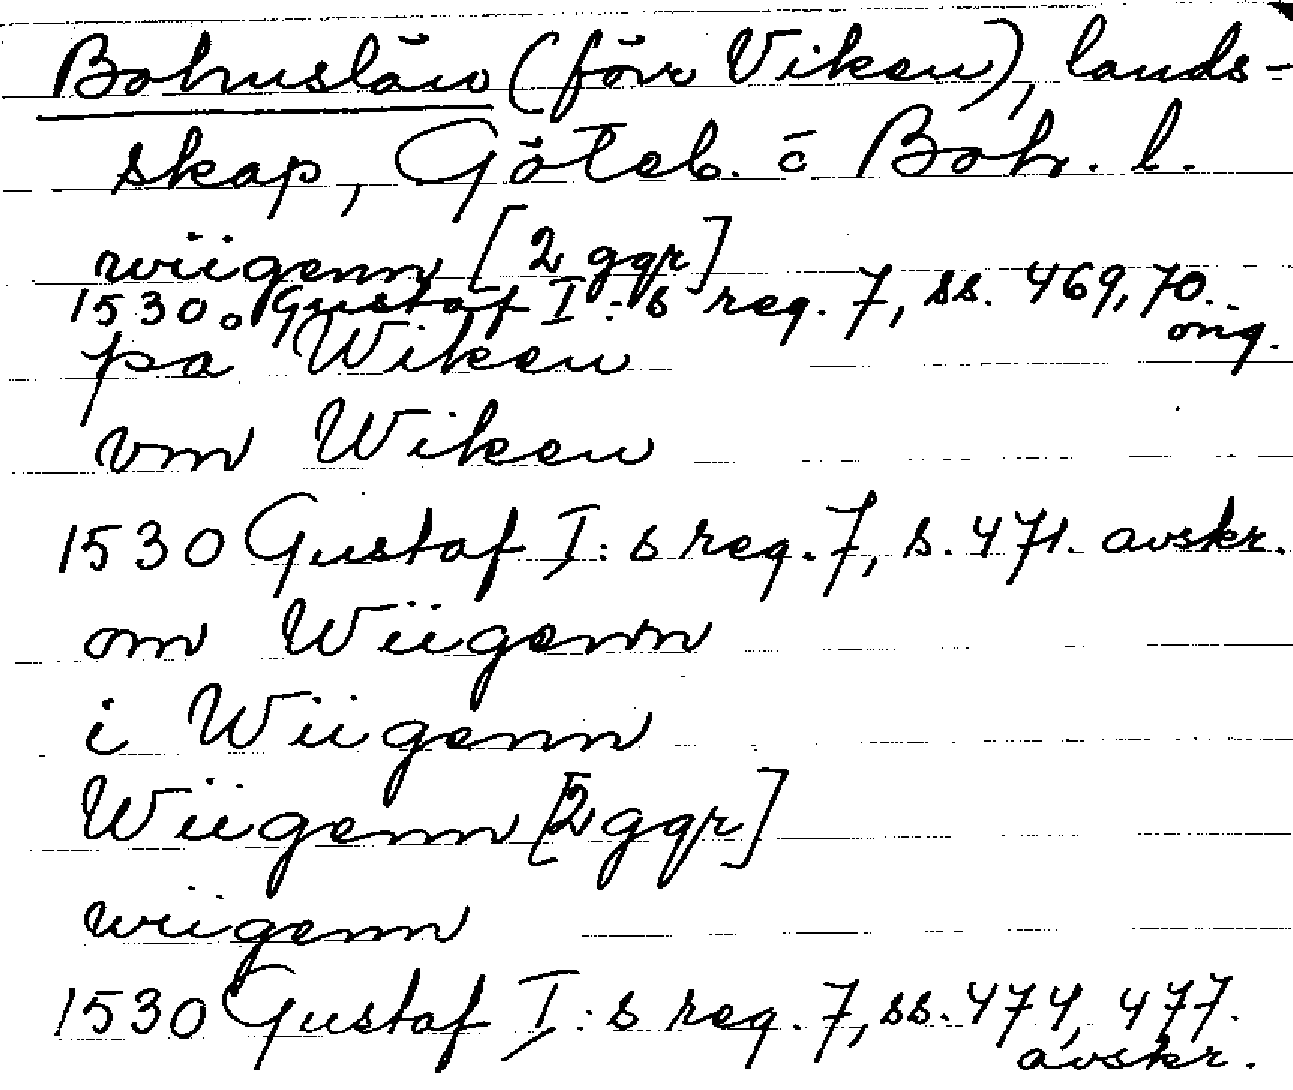 Bohuslän (förr Viken), lands-
skap, Göteb. o Boh. l.
wiigenn [2 ggr]
1530. Gustaf I:s reg. 7, ss. 469, 70.
orig.
pa Wiken
vm Wiken
1530 Gustaf I:s reg. 7, s. 471. avskr.
om Wiigenn
i Wiigenn
Wiigenn [2 ggr]
wiigenn
1530 Gustaf I:s reg. 7, ss. 474, 477.
avskr.